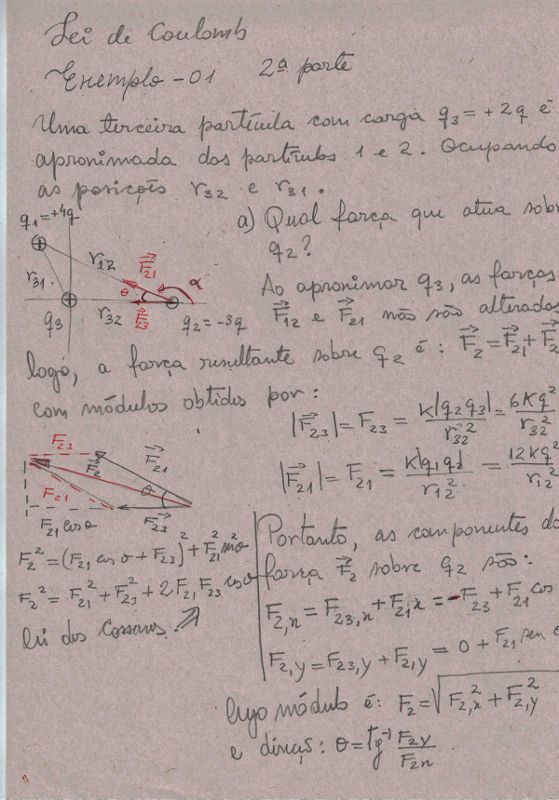 Lei de Coulomb
Exemplo - 01 2ª parte
Uma terceira partícula com carga q₃ = +2q é
aproximada das partículas 1 e 2. Ocupando
as posições r₃₂ e r₃₁.
q₁=+4q
r₁₂
r₃₁
F₂₁
θ
α
q₃
r₃₂
F₂₃
q₂=-3q
a) Qual força que atua sobr
q₂?
Ao aproximar q₃, as forças
F₁₂ e F₂₁ não são alteradas
logo, a força resultante sobre q₂ é: F₂=F₂₁+F₂
com módulos obtidos por:
|F₂₃| = F₂₃ = K|q₂q₃|/r₃₂² = 6Kq²/r₃₂²
|F₂₁| = F₂₁ = K|q₁q₂|/r₁₂² = 12Kq²/r₁₂
F₂₃
F₂
F₂₁
θ
F₂₁
F₂₃
F₂₁ cos θ
F₂² = (F₂₁ cos θ + F₂₃)² + F₂₁²
F₂² = F₂₁² + F₂₃² + 2F₂₁F₂₃ cos θ
lei dos Cossenos.
Portanto, as componentes da
força F₂ sobre q₂ são:
F₂,x = F₂₃,x + F₂₁,x = -F₂₃ + F₂₁ cos
F₂,y = F₂₃,y + F₂,y = 0 + F₂₁ sen
cujo módulo é: F₂ = √F₂,x² + F₂,y²
e direção: θ = tg⁻¹ F₂y/F₂x